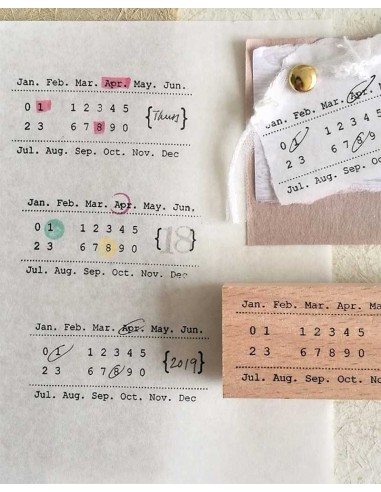 Jan. Feb. Mar. Apr. May. Jun.
0 1 1 2 3 4 5 {Thurs}
2 3 6 7 8 9 0
Jul. Aug. Sep. Oct. Nov. Dec
Jan. Feb. Mar. Apr. May. Jun.
0 1 1 2 3 4 5 {18}
2 3 6 7 8 9 0
Jul. Aug. Sep. Oct. Nov. Dec
Jan. Feb. Mar. Apr. May. Jun.
0 1 1 2 3 4 5 {2019}
2 3 6 7 8 9 0
Jul. Aug. Sep. Oct. Nov. Dec
Feb. Mar. Apr.
0 1 1 2 3 4 5
2 3 6 7 8 9
Jul. Aug. Sep. Oct.
Jan. Feb. Mar. Apr. Ma
0 1 1 2 3 4 5
2 3 6 7 8 9 0
Jul. Aug. Sep. Oct. No